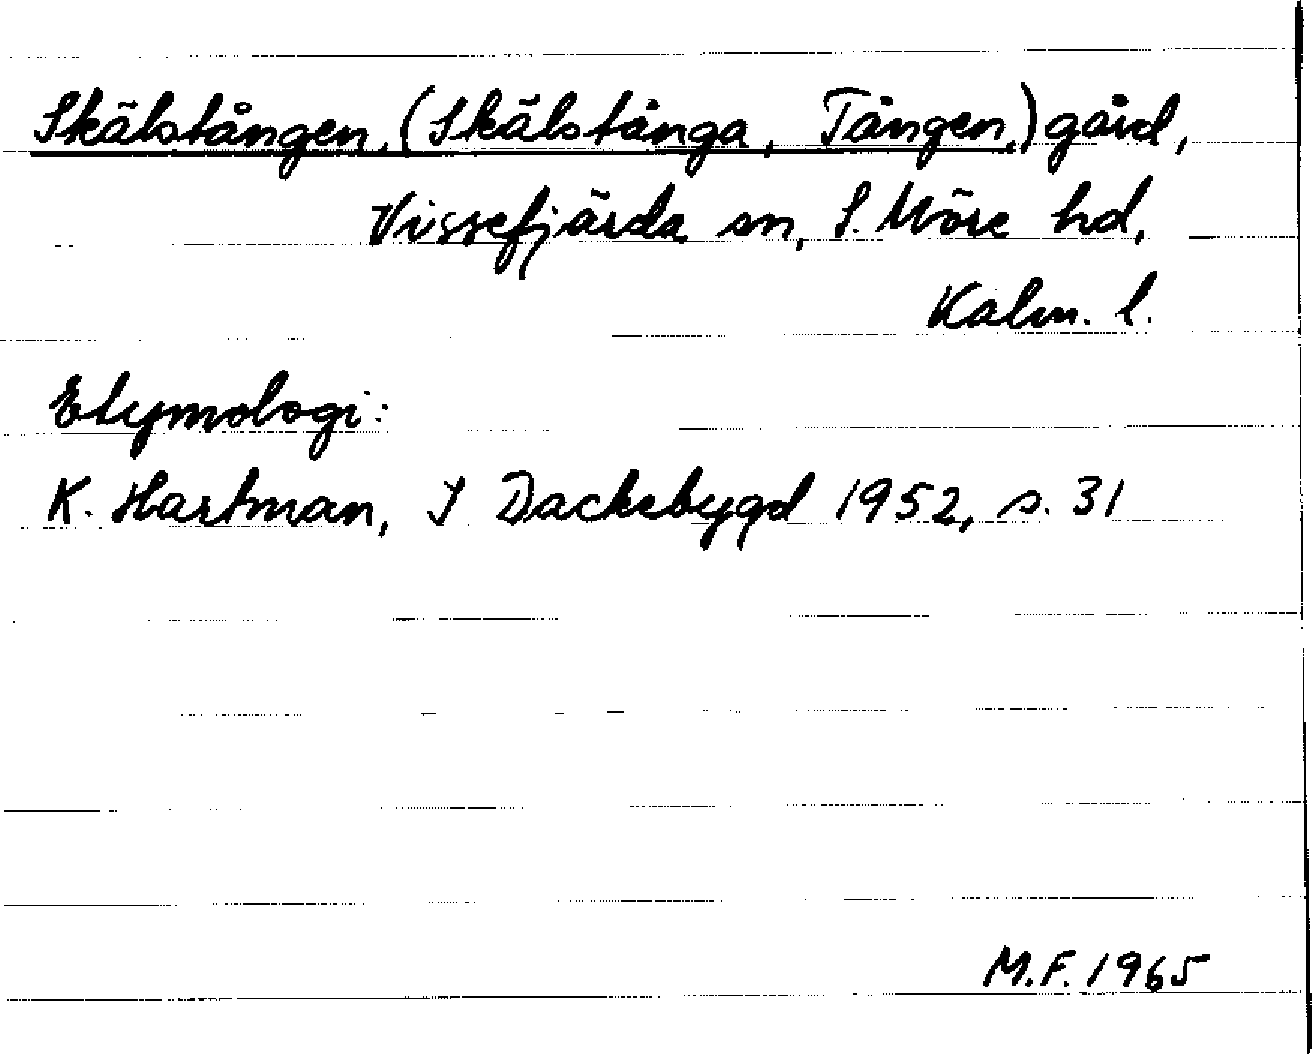 Skälstången, (Skälstånga, Tången,) gård,
Vissefjärda sn, S. Möre hd,
Kalm. l.
Etymologi:
K. Hartman, I Dackebygd 1952, s. 31
M.F. 1965